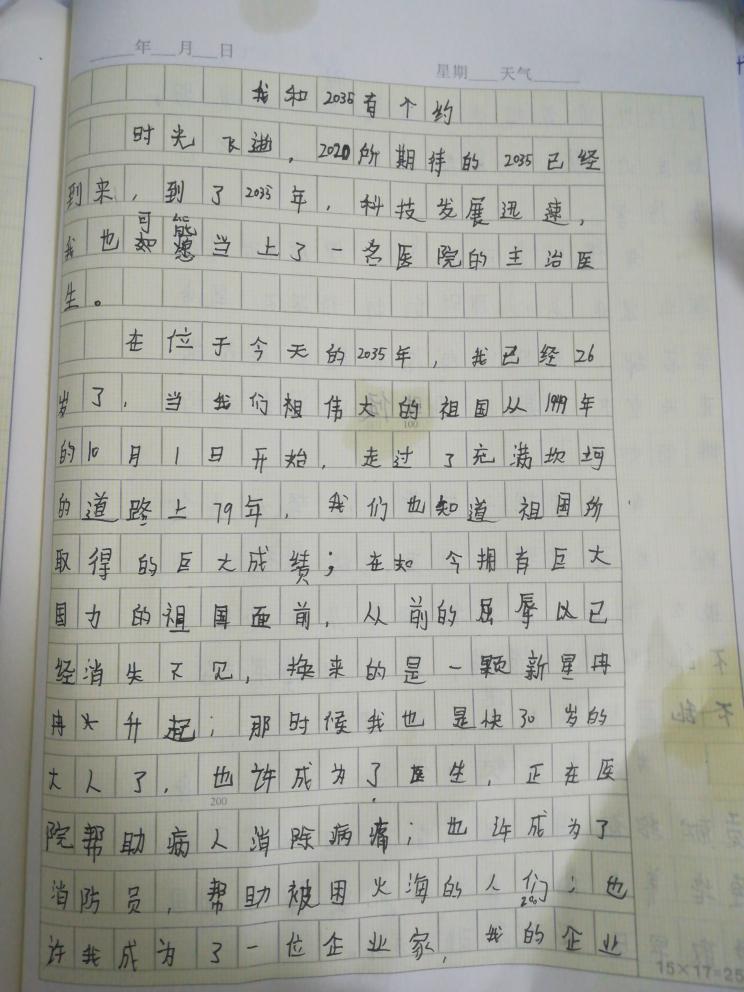 年 月 日
星期 天气
我和2035有个约
时光飞逝，2020所期待的2035已经
到来，到了2035年，科技发展迅速，
我也可能当上了一名医院的主治医
生。
在位于今天的2035年，我已经26
岁了，当我们祖伟大的祖国从1949年
100
的10月1日开始，走过了充满坎坷
的道路上79年，我们也知道祖国所
取得的巨大成绩；在如今拥有巨大
国力的祖国面前，从前的屈辱以已
经消失不见，换来的是一颗新星冉
冉升起；那时候我也是快30岁的
大人了，也许成为了医生，正在医
200
院帮助病人消除病痛；也许成为了
消防员，帮助被困火海的人们；也
许我成为了一位企业家，我的企业
15×17=25